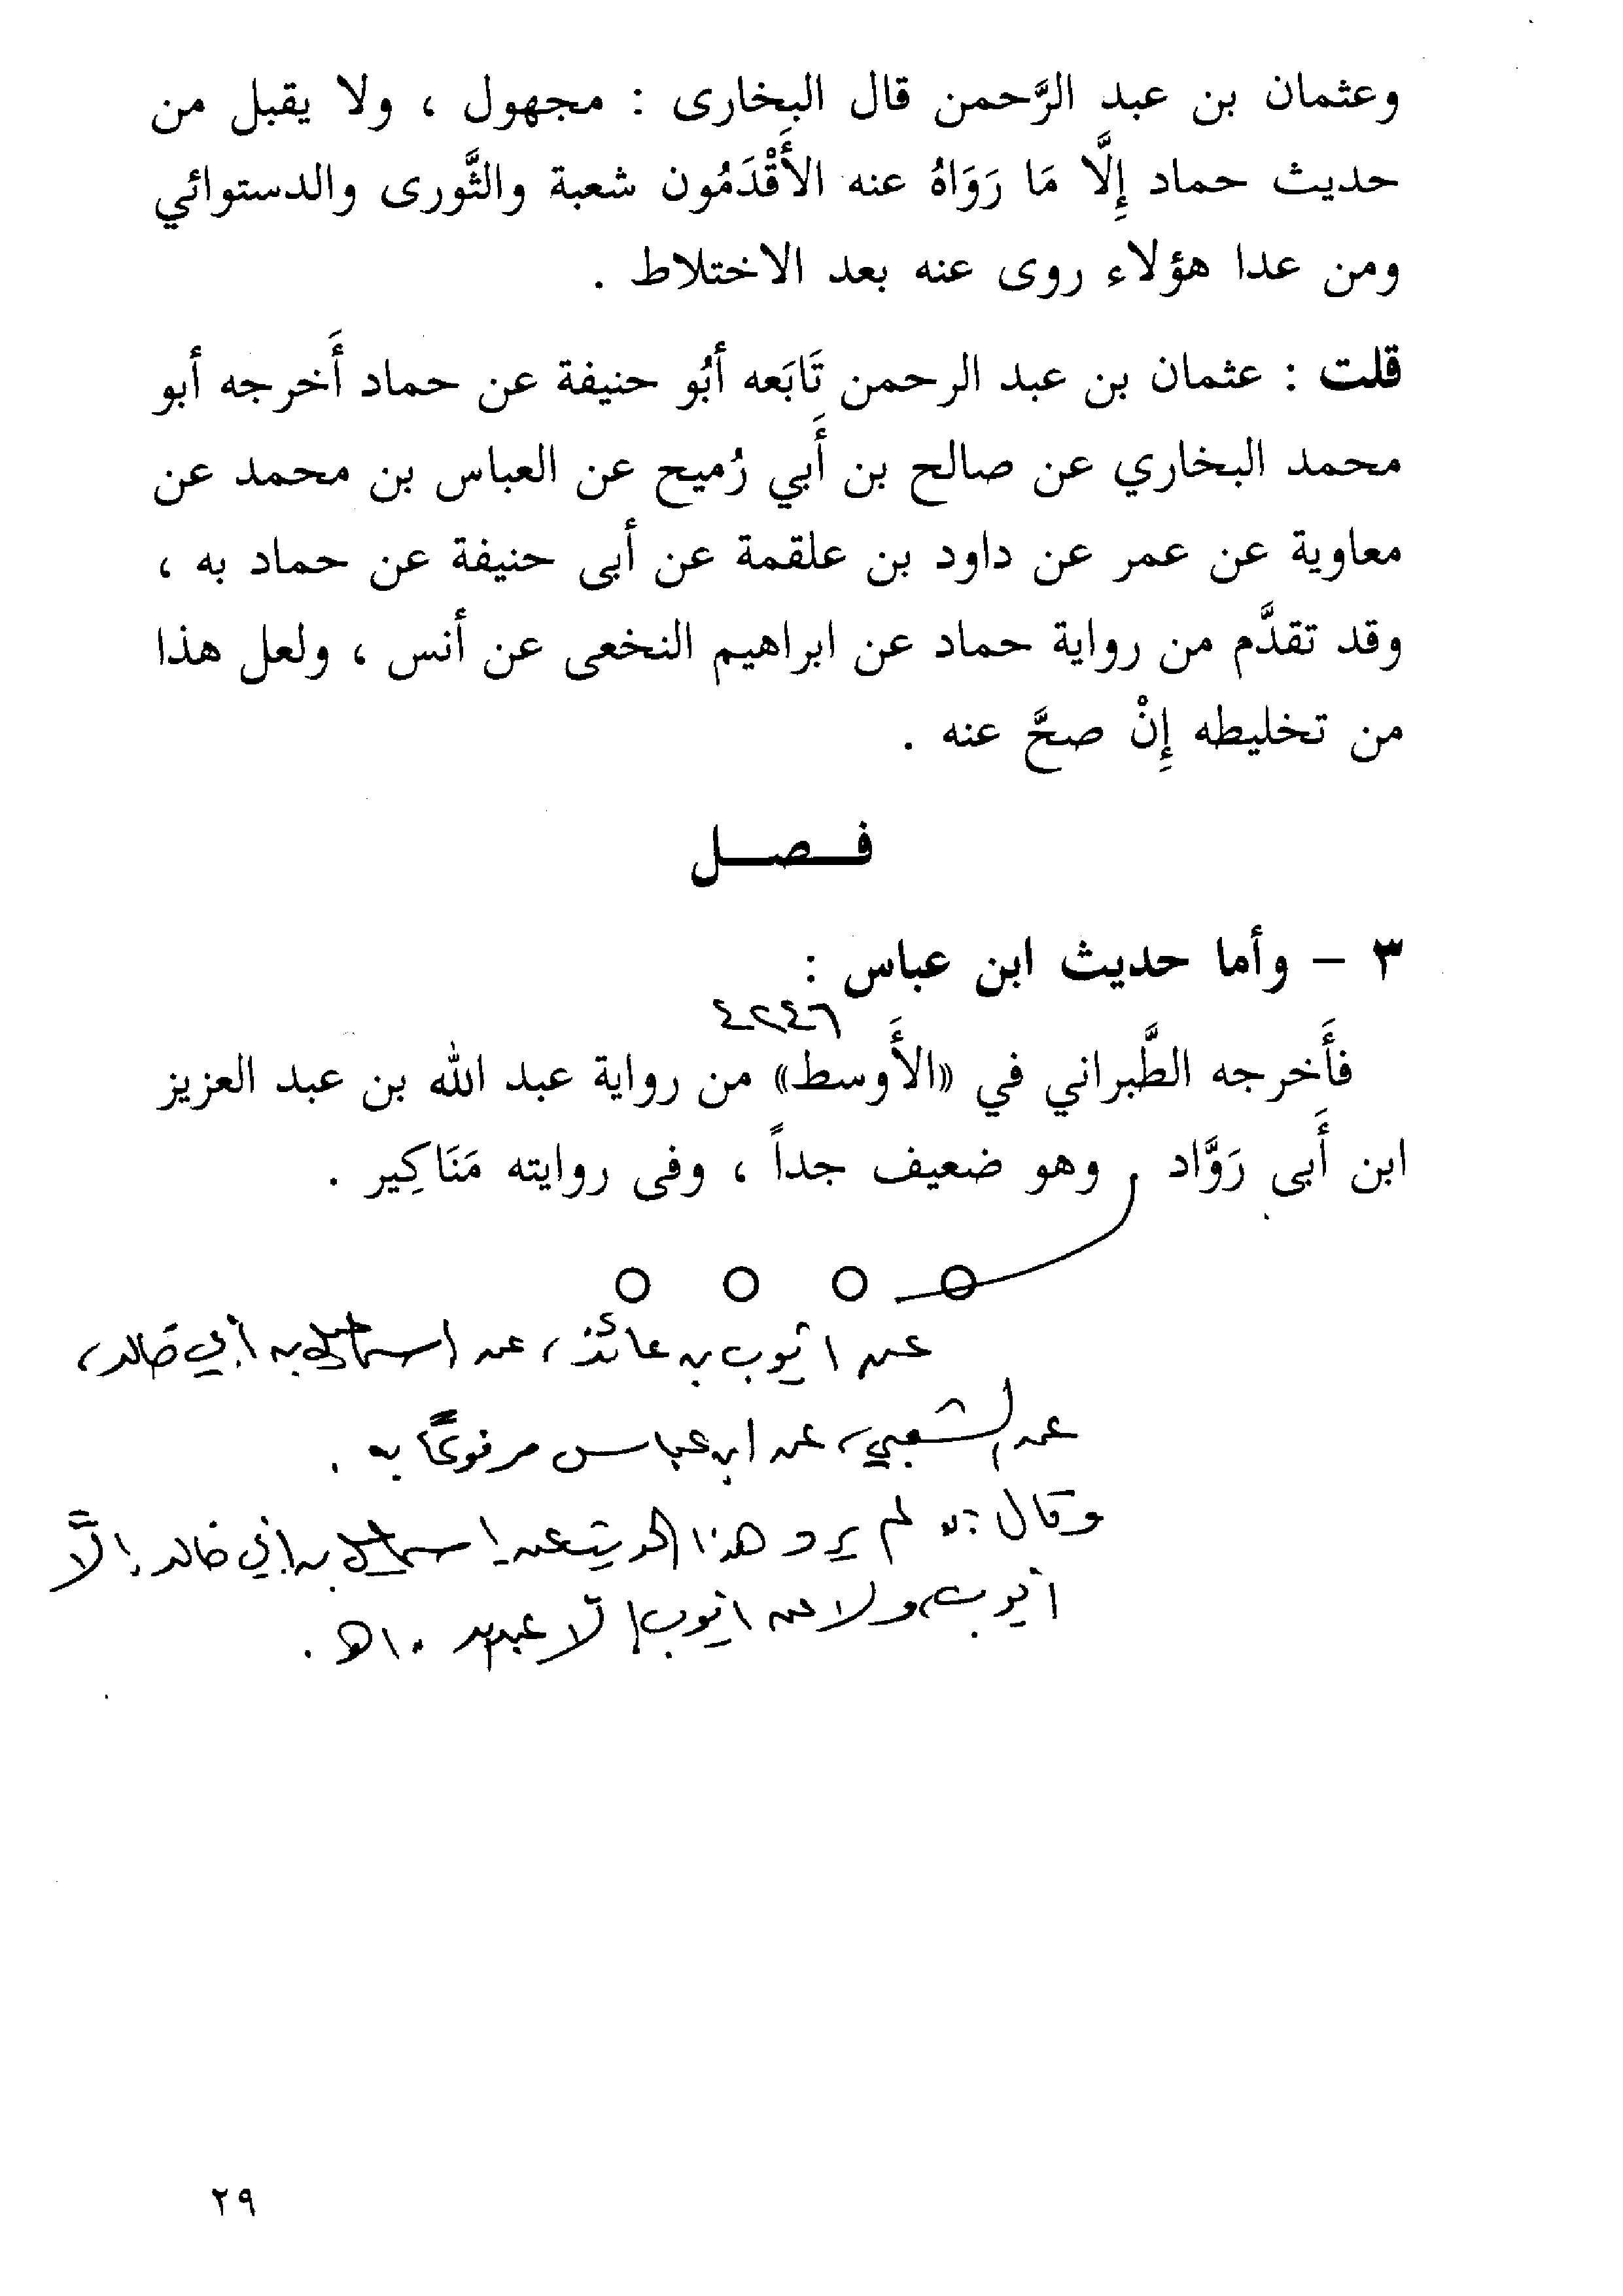 وعثمان بن عبد الرَّحمن قال البخارى : مجهول ، ولا يقبل من
حديث حماد إِلَّا مَا رَوَاهُ عنه الأَقْدَمُون شعبة والثَّورى والدستوائي
ومن عدا هؤلاء روى عنه بعد الاختلاط .
قلت : عثمان بن عبد الرحمن تَابَعه أبُو حنيفة عن حماد أَخرجه أبو
محمد البخاري عن صالح بن أَبي رُميح عن العباس بن محمد عن
معاوية عن عمر عن داود بن علقمة عن أبى حنيفة عن حماد به ،
وقد تقدَّم من رواية حماد عن ابراهيم النخعى عن أنس ، ولعل هذا
من تخليطه إِنْ صحَّ عنه .
فـصـل
٣ - وأما حديث ابن عباس :
٤٢٤٦
فأَخرجه الطَّبراني في «الأَوسط» من رواية عبد الله بن عبد العزيز
ابن أَبى رَوَّاد وهو ضعيف جداً ، وفى روايته مَنَاكِير .
عن أيوب بن عائذ، عن إسماعيل بن أبي خالد،
عن الشعبي، عن ابن عباس مرفوعًا به .
وقال : لم يرو هذا الحديث عن إسماعيل بن أبي خالد إلَّا
أيوب، ولا عن أيوب إلا . اهـ .
٢٩